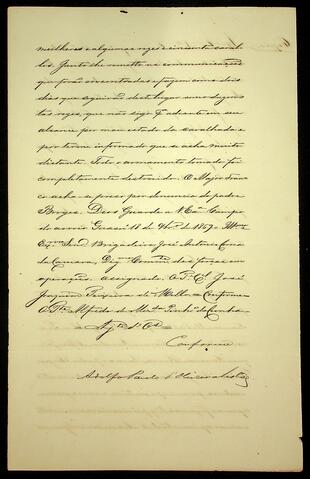 mulheres e algumas rezes e cincoenta caval-
los. Junto lhe remetto as communicações
que forão encontradas e fazem como dois
dias que seguirão deste lugar uns duzen-
tas rezes, que não sigo p.ª adiante em seu
alcance por mau estado da cavalhada e
por terem informado que se acha muito
distante. Todo o armamento tomado foi
completamente destruido. O Major Fran-
co acha-se preso por denuncia do padre
Borges. Deos Guarde a V. Ex.ª Campo
do arroio Guassú 18 de 1869 - Illm.º
Ex.mo Snr. Brigadeiro José Antonio Corrêa
da Camara, Dig.mo Comm.te das forças em
operações. Assignado. O T.e C.el José
Joaquim Teixeira de Mello. Conforme
O T.e Alfredo de Mir.da Pinh.º da Cunha
Aj.te d'O.
Conforme
Adolfo Paulo d'Oliveira Lisboa